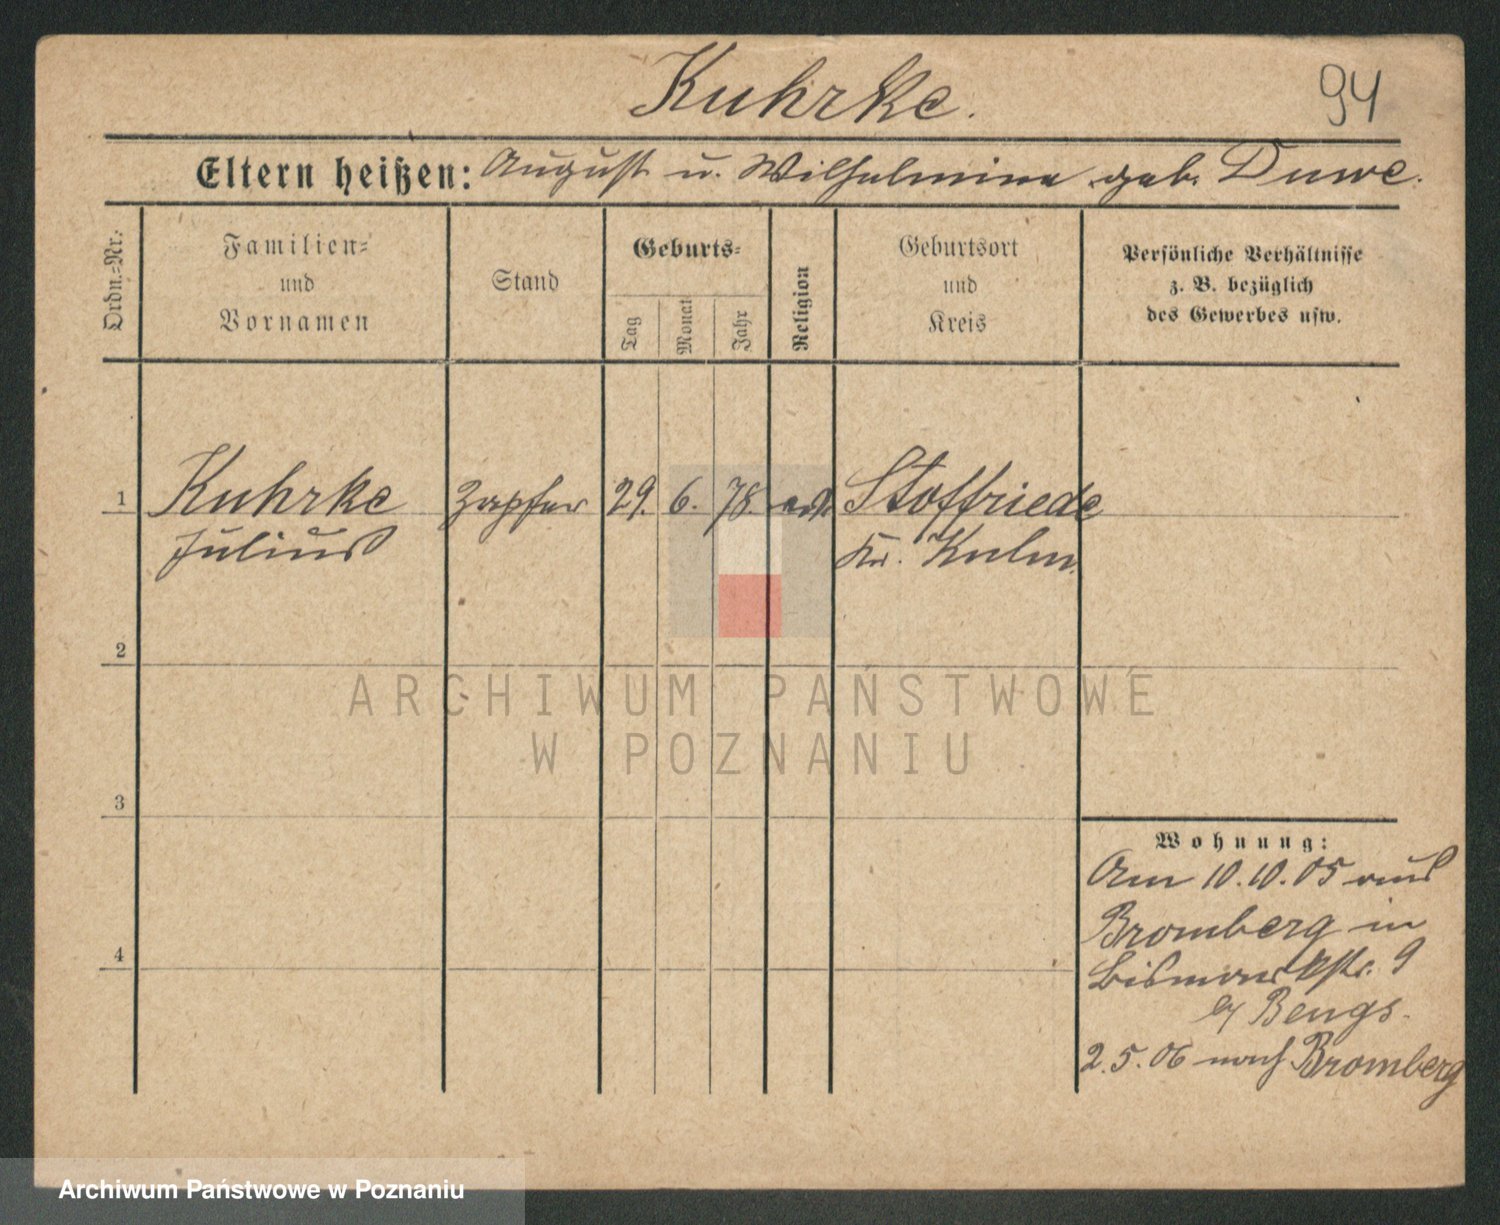 Kuhrke.
94
Eltern heißen: August u. Wilhelmine geb. Duwe.
Ordn.-Nr.
Familien- und Vornamen
Stand
Geburts-
Tag
Monat
Jahr
Religion
Geburtsort und Kreis
Persönliche Verhältnisse
z. B. bezüglich
des Gewerbes usw.
1 Kuhrke Zapfer 29. 6. 78. ev. Stoffriede
Julius Kr. Kulm.
2
ARCHIWUM PAŃSTWOWE
W POZNANIU
3
Wohnung:
Am 10.10.05 aus
Bromberg in
4
Bismarckstr. 9
Bengs.
2.5.06 nach Bromberg
Archiwum Państwowe w Poznaniu